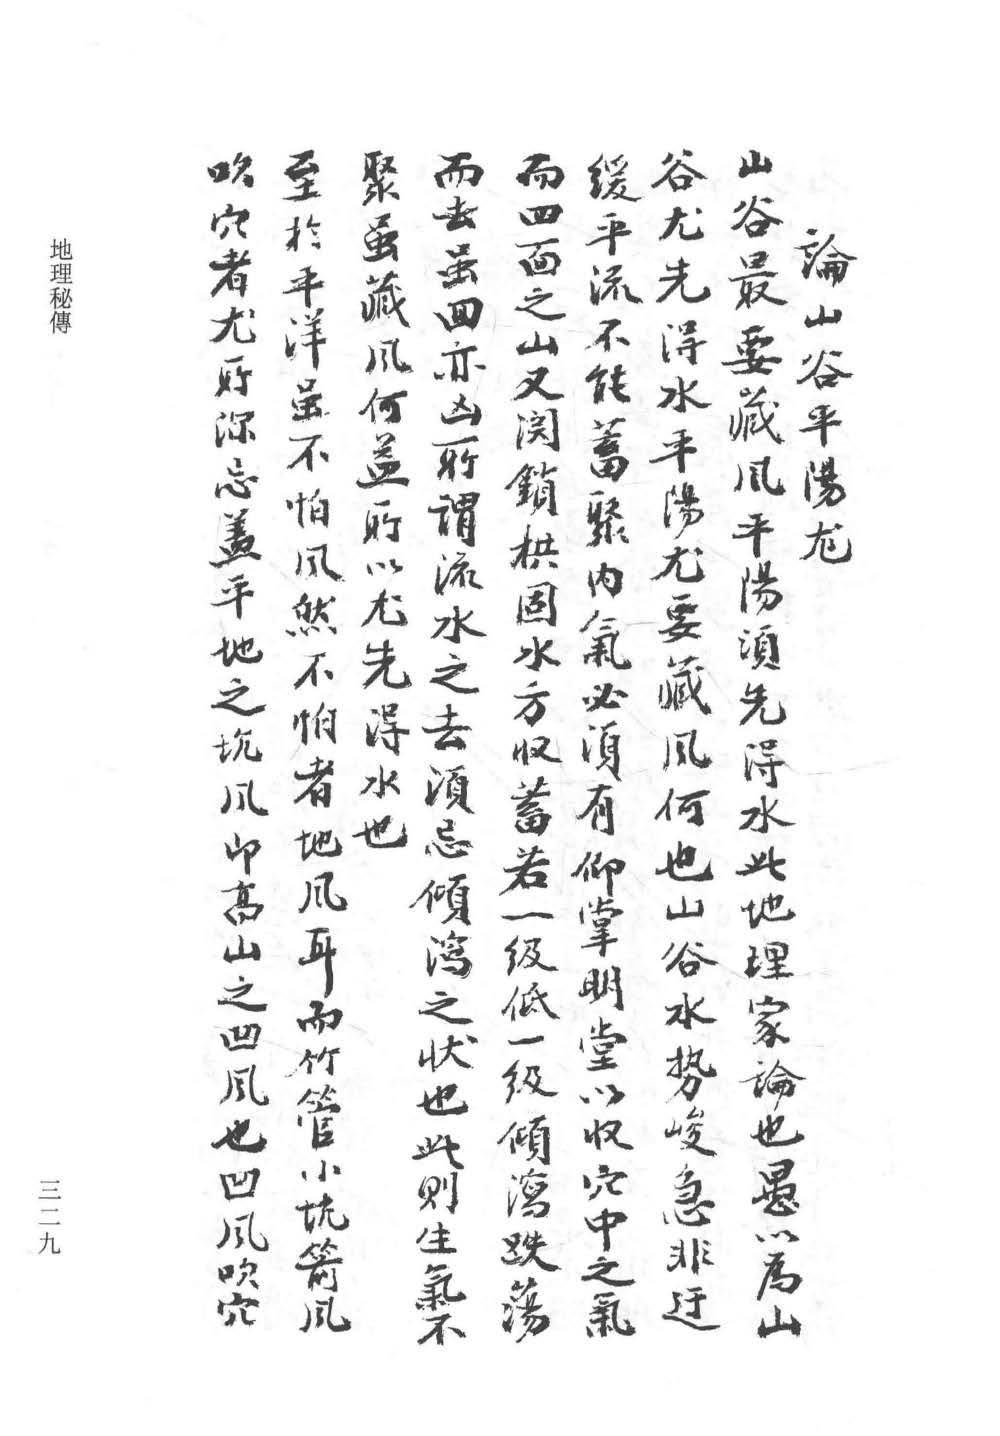 論山谷平陽尤
山谷最要藏风平陽湏先得水此地理家論也愚以為山
谷尤先得水平陽尤要藏风何也山谷水势峻急非迂
缓平流不能蓄聚内氣必湏有仰掌明堂以收穴中之氣
而四面之山又関鎖栱固水方收蓄若一级低一级傾瀉跌蕩
而去虽回亦凶所謂流水之去湏忌傾瀉之状也此則生氣不
聚虽藏风何益所以尤先得水也
至於平洋虽不怕风然不怕者地风耳而竹管小坑箭风
吹穴者尤所深忌盖平地之坑风即高山之凹风也凹风吹穴
地理秘傳
三二九